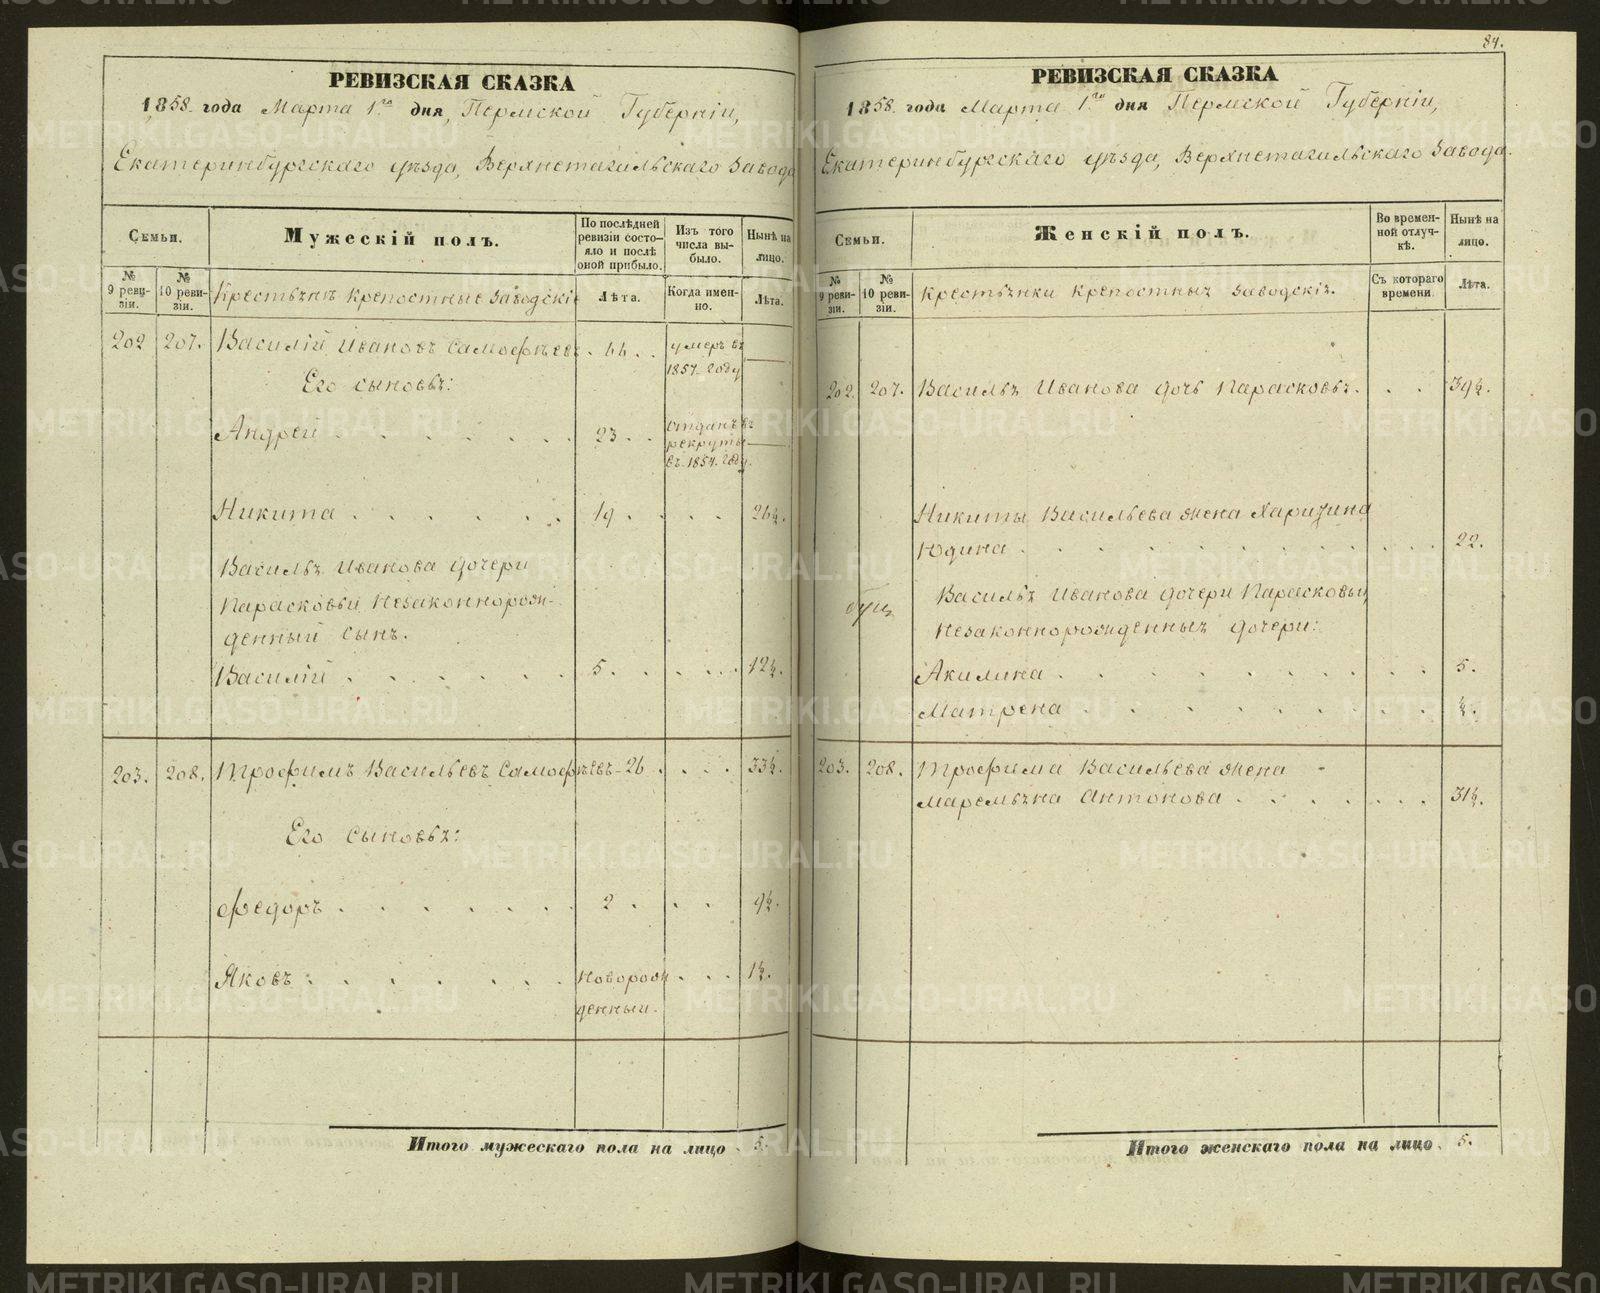 84.
РЕВИЗСКАЯ СКАЗКА
1858. года Марта 1го дня, Пермской Губерніи,
Екатеринбургскаго уѣзда, Верхнетагильскаго Завода
Семьи.
Мужескій полъ.
По послѣдней ревизіи состояло и послѣ оной прибыло.
Изъ того числа выбыло.
Нынѣ на лицо.
№ 9 ревизіи.
№ 10 ревизіи.
Крестьяне крепостные Заводскіе
Лѣта.
Когда именно.
Лѣта.
202 207. Василій Ивановъ Самофѣевъ . 44 . . умеръ въ
1857 году
Его сыновья:
Андрей . . . . . . . 23 . . отданъ въ
рекруты
въ 1854. году.
Никита . . . . . . 19 . . . . 26½.
Василья Иванова дочери
Парасковьи Незаконнорож-
денный сынъ.
Василій . . . . . . 5 . . . . . 12½.
203. 208. Трофимъ Васильевъ Самофѣевъ - 26 . . . . 33½.
Его сыновья:
Федоръ . . . . . . . 2 . . . 9½.
Яковъ . . . . . . . Новорож . . . 1½.
денный.
Итого мужескаго пола на лицо . 5.
РЕВИЗСКАЯ СКАЗКА
1858. года Марта 1го дня Пермской Губерніи,
Екатеринбургскаго уѣзда, Верхнетагильскаго Завода.
Семьи.
Женскій полъ.
Во временной отлучкѣ.
Нынѣ на лицо.
№ 9 ревизіи.
№ 10 ревизіи.
Крестьянки крепостныя Заводскія.
Съ котораго времени
Лѣта.
202. 207. Василья Иванова дочь Парасковья. . . 39½.
Никиты Васильева жена Харитина
Юдина . . . . . . . . . . . 22.
Василья Иванова дочери Парасковьи
Незаконнорожденныя дочери:
Акилина . . . . . . . . . . 5.
Матрена . . . . . . . . . . ½.
203. 208. Трофима Васильева жена
Маремьяна Антонова . . . . . . . 31½.
Итого женскаго пола на лицо . 5.
METRIKI.GASO-URAL.RU